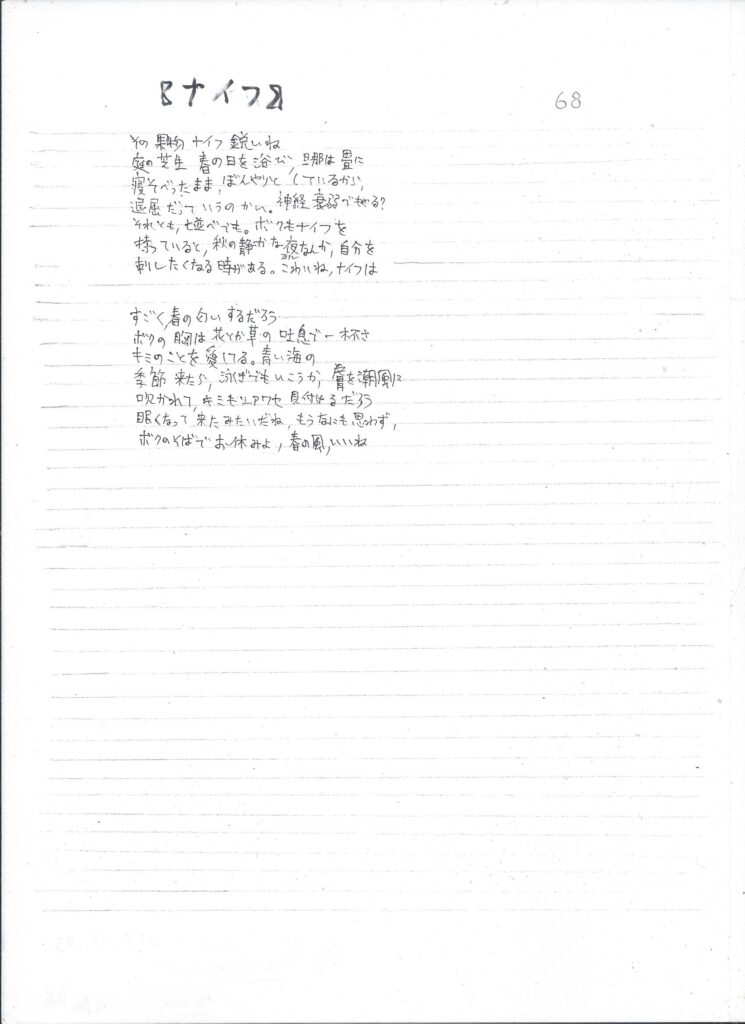 【ナイフ】
68
その果物ナイフ鋭いね
庭の芝生 春の日を浴び, 旦那は畳に
寝そべったまま, ぼんやりと しているから,
退屈だっていうのかい。神経衰弱でもやる?
それとも, 七並べでも。ボクもナイフを
持っていると, 秋の静かな夜なんか, 自分を
刺したくなる時がある。こわいね, ナイフは
すごく, 春の匂いするだろう
ボクの胸は花とか草の吐息で一杯さ
キミのことを愛してる。青い海の
季節来たら, 泳ぎでもいこうか, を潮風に
吹かれて, キミもシアワセ見付けるだろう
眠くなって来たみたいだね, もうなにも思わず,
ボクのそばでお休みよ, 春の風, いいね